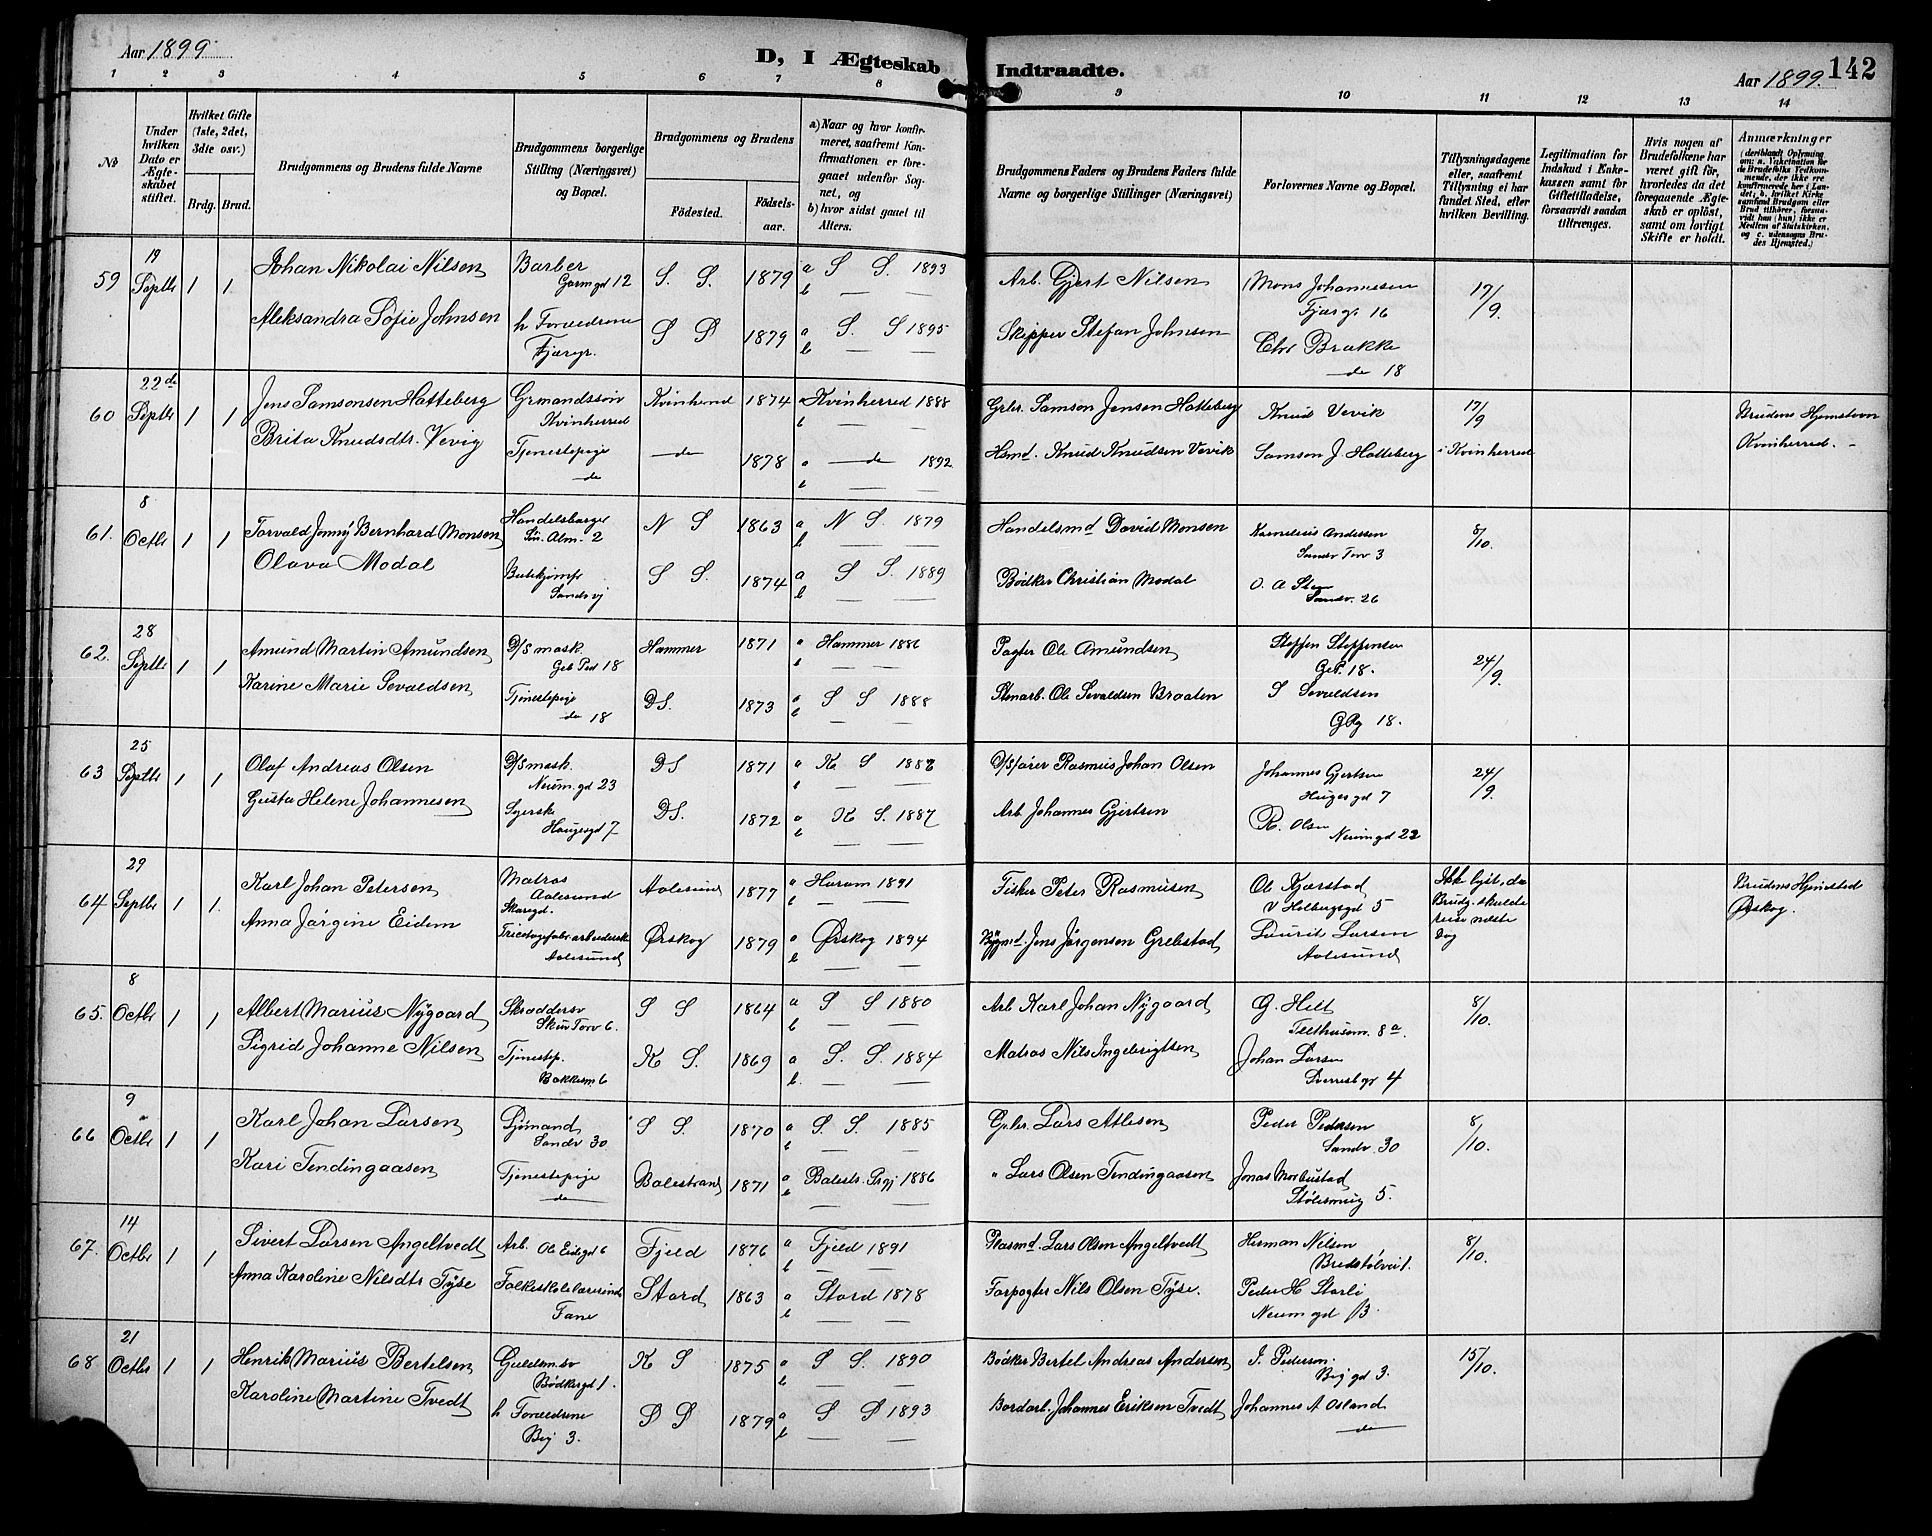 Aar 1899
D, I Ægteskab Indtraadte.
Aar 1899. 142
1 2 3 4 5 6 7 8 9 10 11 12 13 14
No
Under hvilken Dato er Ægteskabet stiftet.
Hvilket Gifte (1ste, 2det, 3dte osv.)
Brdg. Brud.
Brudgommens og Brudens fulde Navne
Brudgommens borgerlige Stilling (Næringsvei) og Bopæl.
Brudgommens og Brudens
Födested. Födsels-aar.
a) Naar og hvor konfirmeret, saafremt Konfirmationen er foregaaet udenfor Sognet, og
b) hvor sidst gaaet til Alters.
Brudgommens Faders og Brudens Faders fulde Navne og borgerlige Stillinger (Næringsvei)
Forlovernes Navne og Bopæl.
Tillysningsdagene eller, saafremt Tillysning ei har fundet Sted, efter hvilken Bevilling.
Legitimation for Indskud i Enkekassen samt for Giftetilladelse, forsaavidt saadan tiltrænges.
Hvis nogen af Brudefolkene har været gift för, hvorledes da det foregaaende Ægteskab er oplöst, samt om lovligt Skifte er holdt.
Anmærkninger
(deriblandt Oplysning om: a. Vakcination for de Brudefolks Vedkommende, der ikke ere konfirmerede her i Landet; b. hvilket Kirkesamfund Brudgom eller Brud tilhörer, forsaavidt han (hun) ikke er Medlem af Statskirken, og c. udensogns Brudes Hjemsted.)
59 19 Septbr 1 1 Johan Nikolai Nilsen Barber Garmgd 12 S. S. 1879 a S S. 1893 b — — Arb. Gjert Nilsen Mons Johannesen Fjærgr 16 17/9.
Aleksandra Sofie Johnsen h Forældrene Fjærgr. S S 1879 a S. S 1895 b — — Skipper Stefan Johnsen Chr Brakke de 18
60 22de Septbr 1 1 Jens Samsonsen Hatteberg Grmandssön Kvinherred Kvinherred 1874 a Kvinherred 1888 b — Grbr. Samson Jensen Hatteberg Knud Vevik 17/9 i Kvinherred Brudens Hjemstavn Kvinherred. –
Brita Knudsdtr. Vevig Tjenestepige de — de 1878 a — de 1892 b Hsmd. Knud Knudsen Vevik Samson J. Hatteberg
61. 8 Octbr 1 1 Torvald Jonny Bernhard Monsen Handelsborger Sin. Alm. 2 N S 1863 a N S. 1879 b — — Handelsmd David Monsen Kornelius Andersen Sandv Torv 3 8/10.
Olava Modal Butikjomfr Sandvj S S. 1874 a S S. 1889 b — — Bødker Christian Modal O. A Sten Sandv. 26
62. 28 Septbr 1 1 Amund Martin Amundsen D/S mask. Geb Ped 18 Hammer 1871 a Hammer 1886 b — Pagter Ole Amundsen Steffen Steffensen GebP. 18. 24/9
Karine Marie Sevaldsen Tjenestepige de 18 DS. 1873 a S S 1888 b — — Stenarb. Ole Sevaldsen Braaten S Sevaldsen 18.
63 25 Septbr 1 1 Olaf Andreas Olsen D/S mask. Neumgd 23 DS 1871 a K S 1888 b — — D/Sfører Rasmus Johan Olsen Johannes Gjertsen Haugesgd 7 24/9.
Gusta Helene Johannesen Syerske Haugesgd 7 DS. 1872 a K S. 1887 b — — Arb. Johannes Gjertsen R. Olsen Neumgd 22
64 29 Septbr 1 1. Karl Johan Petersen Matros Aalesund Skaregd. Aalesund 1877 a Haram 1891 b — Fisker Peter Rasmusen Ole Kjærstad V Holbergsgd 5 Ikk lyst, da Brudg. skulde reise næste Dag Brudens Hjemsted Ørskog.
Anna Jörgine Eidem Tricotagefabr arbeiderske Aalesund Ørskog 1879 a Ørskog 1894 b — — Jens Jörgensen Grebstad Laurits Larsen Aalesund
65. 8 Octbr 1 1 Albert Marius Nygaard Skræddersv Skur Torv 6. S S 1864 a S S 1880 b — — Arb. Karl Johan Nygaard G. Helt Telthussm. 8 a. 8/10.
Sigrid Johanne Nilsen Tjenestep. Bakkesm 6 K S. 1869 a S. S. 1884 b. — — Matros Nils Ingebrigtsen Johan Larsen Sverresbgr 4
66 9 Octbr 1 1 Karl Johan Larsen Sjömand Sandv 30 S S. 1870 a S. S. 1885 b — — Grbr. Lars Atlesen Peder Pedersen Sandv. 30 8/10.
Kari Tendingaasen Tjenestepige de Balestrand 1871 a Balestr. Prgj. 1886 b — — " Lars Olsen Tendingaasen Jonas Morkustad Stölesmug 5.
67. 14 Octbr 1 1 Sivert Larsen Angeltvedt Arb. Ole Eidsgd 6 Fjeld 1876 a Fjeld 1891 b — Plasmd. Lars Olsen Angeltvedt Herman Nilsen Bredstölvei 1. 8/10.
Anna Karoline Nilsdtr Tyse Folkeskolelærerinde Fane Stord 1863 a Stord 1878 b — Forpagter Nils Olsen Tyse. Peder H Storli Neumgd
68 21 Octbr 1 1 Henrik Marius Bertelsen Guldsm.sv Bödkergd 1. K S 1875 a S S. 1890 b — — Bödker Bertel Andreas Andersen J. Pedersen Bygd 3. 15/10.
Karoline Martine Tvedt h Forældrene Byg 3. S S 1879 a S S 1893 b — — Bordarb. Johannes Eriksen Tvedt Johannes A Osland de